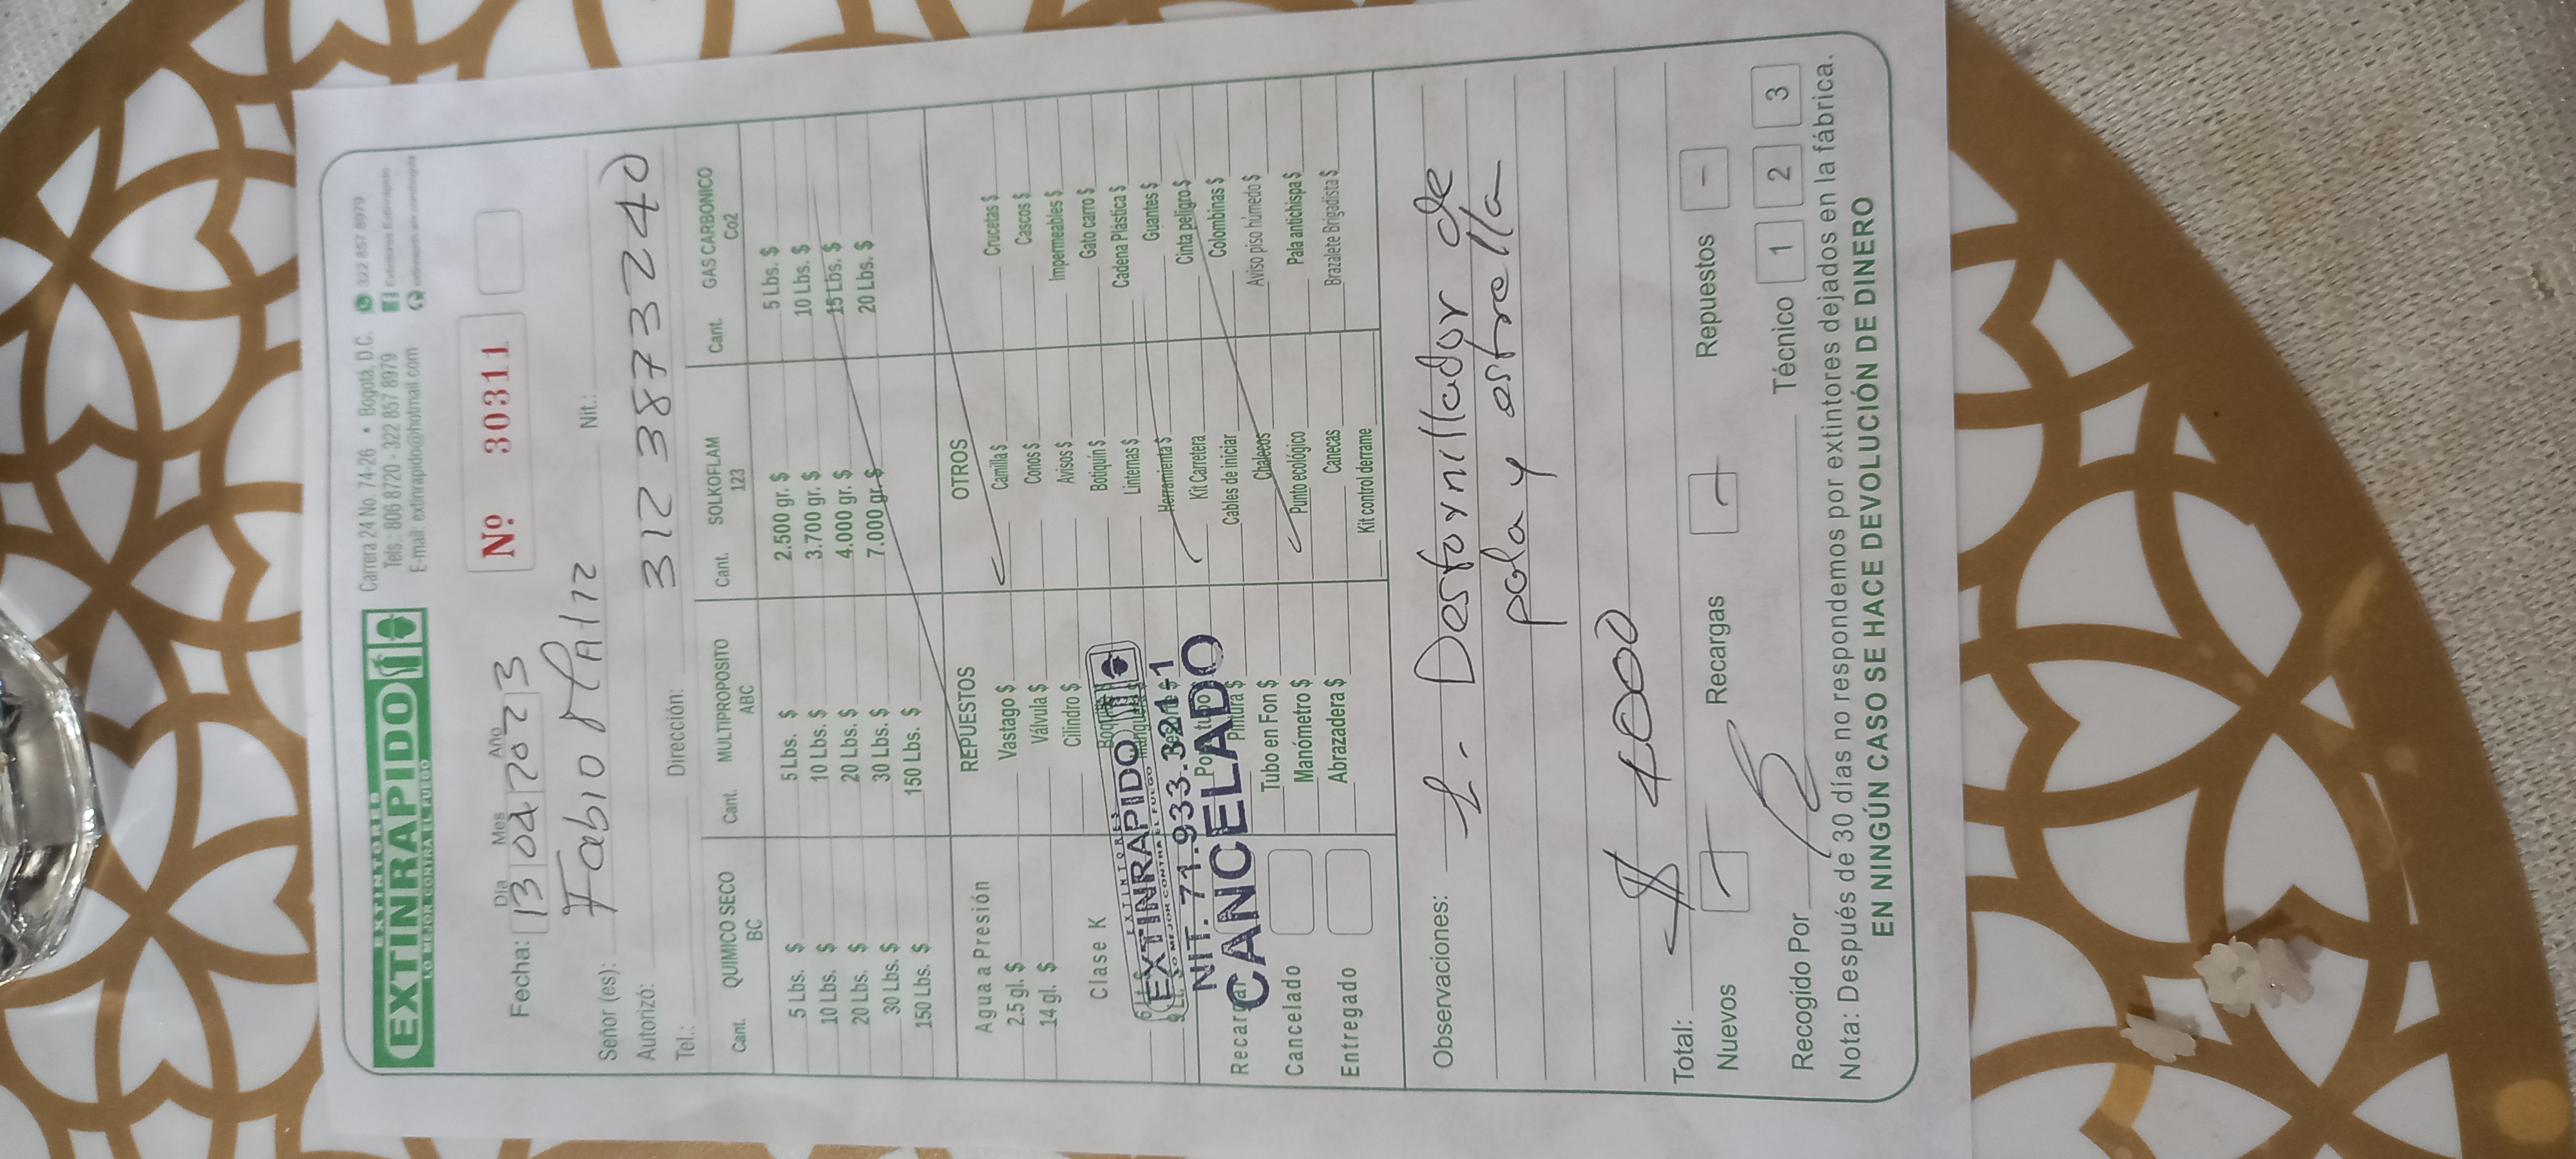 EXTINTORES
EXTINRAPIDO
LO MEJOR CONTRA EL FUEGO
Carrera 24 No. 74-26 • Bogotá, D.C.
Tels.: 806 8720 - 322 857 8979
E-mail: extinrapido@hotmail.com
322 857 8979
Extintores Extinrapido
Día Mes Año
Fecha: 13 04 2023
Nº 30311
Señor (es): Fabio Nit.:
Autorizó: 312 3873240
Tel.: Dirección:
Cant. QUIMICO SECO BC
5 Lbs. $
10 Lbs. $
20 Lbs. $
30 Lbs. $
150 Lbs. $
Cant. MULTIPROPOSITO ABC
5 Lbs. $
10 Lbs. $
20 Lbs. $
30 Lbs. $
150 Lbs. $
Cant. SOLKOFLAM 123
2.500 gr. $
3.700 gr. $
4.000 gr. $
7.000 gr. $
Cant. GAS CARBONICO Co2
5 Lbs. $
10 Lbs. $
15 Lbs. $
20 Lbs. $
Agua a Presión
2.5 gl. $
14 gl. $
Clase K
Recargar
Cancelado
Entregado
REPUESTOS
Vastago $
Válvula $
Cilindro $
Pintura $
Tubo en Fon $
Manómetro $
Abrazadera $
EXTINTORES
EXTINRAPIDO
LO MEJOR CONTRA EL FUEGO
NIT. 71.933.321-1
CANCELADO
OTROS
Camilla $
Conos $
Avisos $
Botiquín $
Linternas $
Herramienta $
Kit Carretera
Cables de iniciar
Chalecos
Punto ecológico
Canecas
Kit control derrame
Crucetas $
Cascos $
Impermeables $
Gato carro $
Cadena Plástica $
Guantes $
Cinta peligro $
Colombinas $
Aviso piso húmedo $
Pala antichispa $
Brazalete Brigadista $
Observaciones: 1. Destornillador de
pala y estrella
Total: $ 4000
Nuevos Recargas Repuestos
Recogido Por Técnico 1 2 3
Nota: Después de 30 días no respondemos por extintores dejados en la fábrica.
EN NINGÚN CASO SE HACE DEVOLUCIÓN DE DINERO